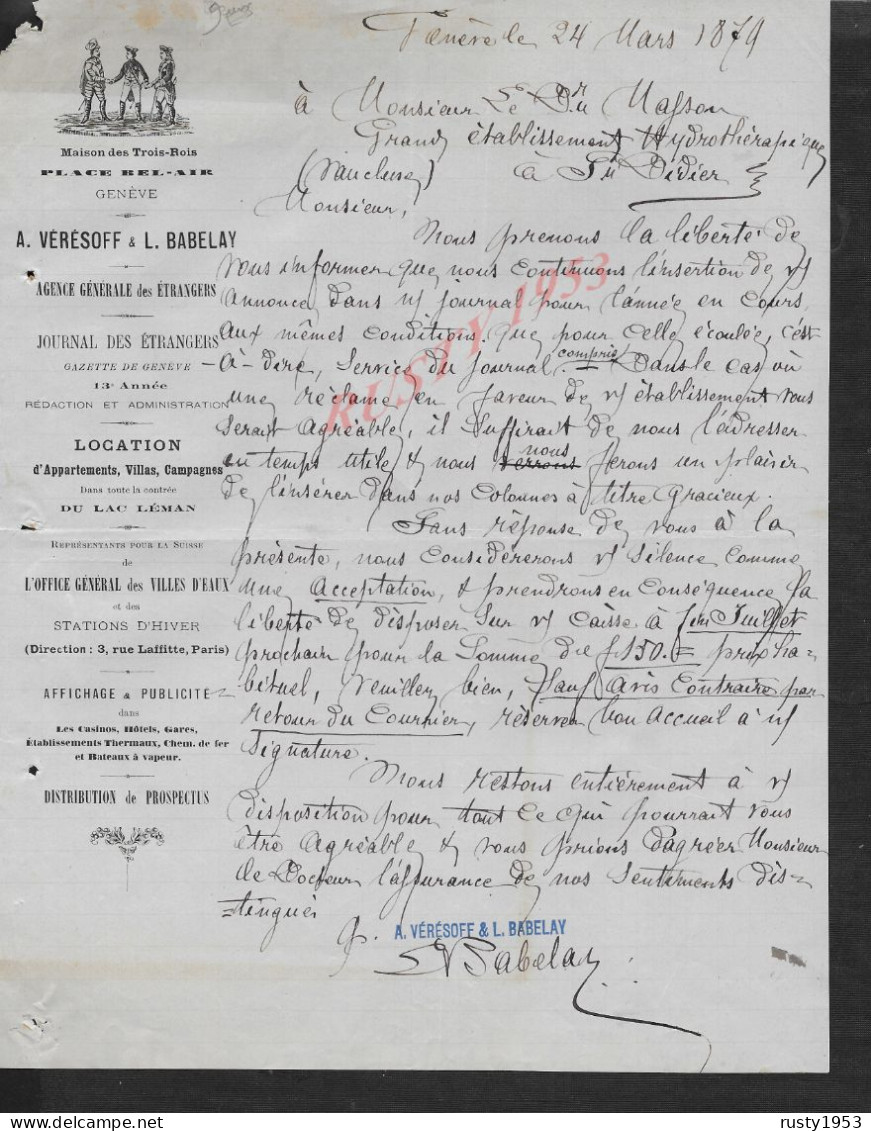 Genève le 24 Mars 1879
Maison des Trois-Rois
PLACE BEL-AIR
GENÈVE
A. VÉRÉSOFF & L. BABELAY
AGENCE GÉNÉRALE des ÉTRANGERS
JOURNAL DES ÉTRANGERS
GAZETTE DE GENÈVE
13e Année
RÉDACTION ET ADMINISTRATION
LOCATION
d'Appartements, Villas, Campagnes
Dans toute la contrée
DU LAC LÉMAN
REPRÉSENTANTS POUR LA SUISSE
de
L'OFFICE GÉNÉRAL des VILLES D'EAUX
et des
STATIONS D'HIVER
(Direction : 3, rue Laffitte, Paris)
AFFICHAGE & PUBLICITÉ
dans
Les Casinos, Hôtels, Gares,
Établissements Thermaux, Chem. de fer
et Bateaux à vapeur.
DISTRIBUTION de PROSPECTUS
à Monsieur Le Dr Masson
Grand établissement Hydrothérapique
(Vaucluse) à St Didier
Monsieur,
Nous prenons la liberté de
vous informer que nous continuons l'insertion de v/
annonce dans n/ journal pour l'année en cours,
aux mêmes conditions que pour celle écoulée, c'est-
-à-dire, Service du journal compris. Dans le cas où
une réclame en faveur de v/ établissement vous
serait agréable, il suffirait de nous l'adresser
en temps utile & nous nous ferons un plaisir
de l'insérer dans nos colonnes à titre gracieux.
Sans réponse de vous à la
présente, nous considérerons v/ silence comme
une acceptation, & prendrons en conséquence la
liberté de disposer sur v/ caisse à fin Juillet
prochain pour la somme de f 150.= prix ha-
bituel, veuillez bien, sauf avis contraire par
retour du courrier, réserver bon accueil à n/
signature.
Nous restons entièrement à v/
disposition pour tout ce qui pourrait vous
être agréable & vous prions d'agréer Monsieur
le Docteur l'assurance de nos sentiments dis-
-tingués
p. A. VÉRÉSOFF & L. BABELAY
LBabelay
RUSTY 1953
rusty1953